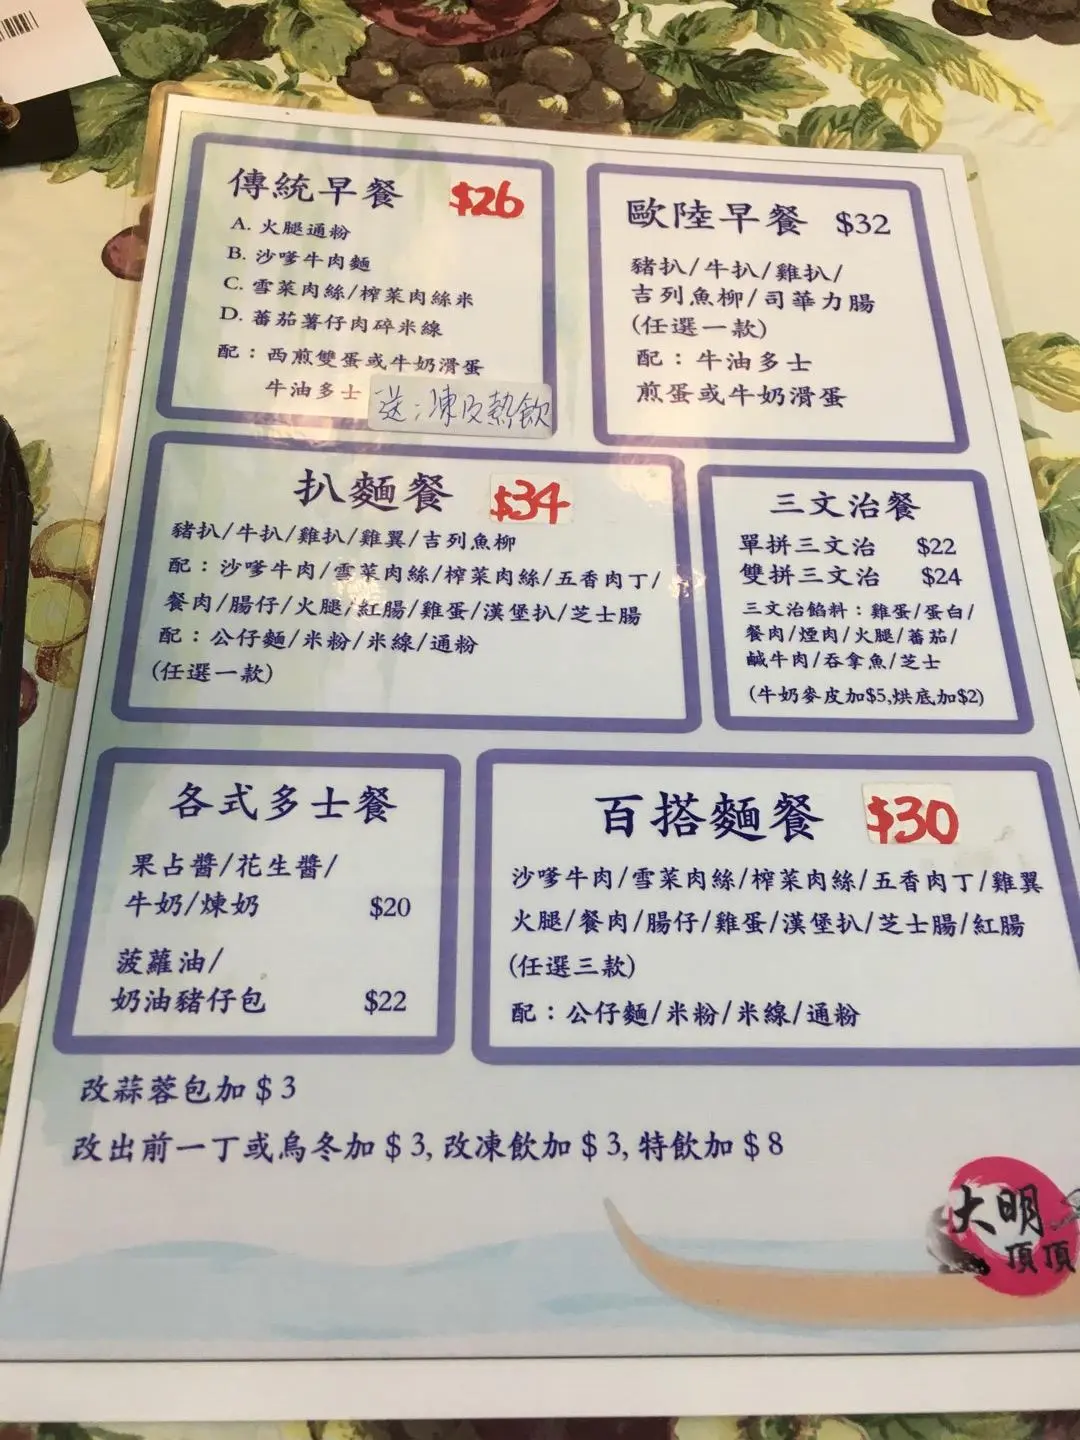 傳統早餐 $26
A. 火腿通粉
B. 沙嗲牛肉麵
C. 雪菜肉絲/榨菜肉絲米
D. 蕃茄薯仔肉碎米線
配：西煎雙蛋或牛奶滑蛋
牛油多士
送：凍及熱飲
歐陸早餐 $32
豬扒/牛扒/雞扒/
吉列魚柳/司華力腸
(任選一款)
配：牛油多士
煎蛋或牛奶滑蛋
扒麵餐 $34
豬扒/牛扒/雞扒/雞翼/吉列魚柳
配：沙嗲牛肉/雪菜肉絲/榨菜肉絲/五香肉丁/
餐肉/腸仔/火腿/紅腸/雞蛋/漢堡扒/芝士腸
配：公仔麵/米粉/米線/通粉
(任選一款)
三文治餐
單拼三文治 $22
雙拼三文治 $24
三文治餡料：雞蛋/蛋白/
餐肉/煙肉/火腿/蕃茄/
鹹牛肉/吞拿魚/芝士
(牛奶麥皮加$5,烘底加$2)
各式多士餐
果占醬/花生醬/
牛奶/煉奶 $20
菠蘿油/
奶油豬仔包 $22
百搭麵餐 $30
沙嗲牛肉/雪菜肉絲/榨菜肉絲/五香肉丁/雞翼
火腿/餐肉/腸仔/雞蛋/漢堡扒/芝士腸/紅腸
(任選三款)
配：公仔麵/米粉/米線/通粉
改蒜蓉包加$3
改出前一丁或烏冬加$3,改凍飲加$3,特飲加$8
大明
頂頂